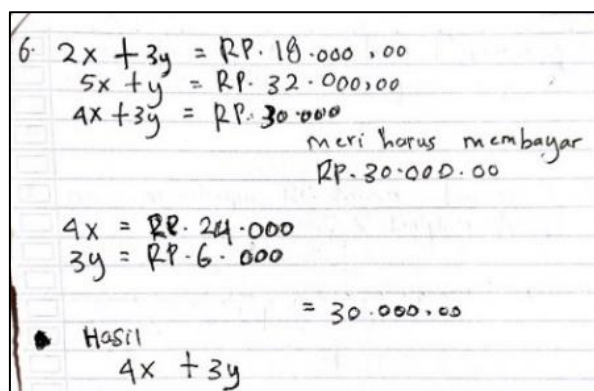 6. 2x + 3y = RP. 18.000,00
5x + y = RP. 32.000,00
4x + 3y = RP. 30.000
meri harus membayar
RP. 30.000.00
4x = RP. 24.000
3y = RP. 6.000
= 30.000,00
Hasil
4x + 3y